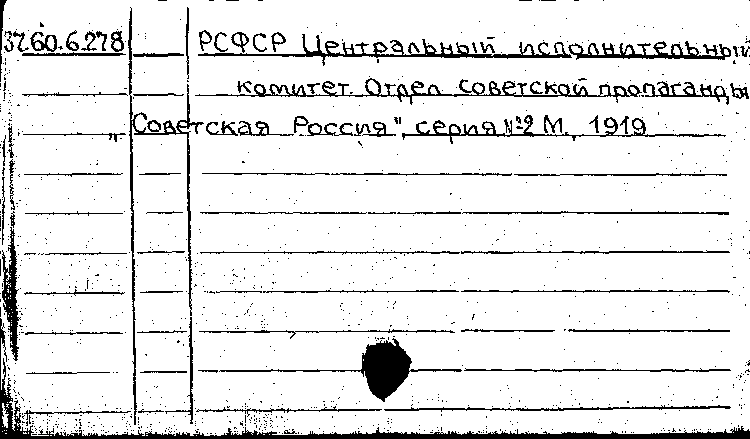 37.60.6.278 РСФСР Центральный исполнительный
комитет. Отдел советской пропаганды
„Советская Россия", серия №2 М., 1919